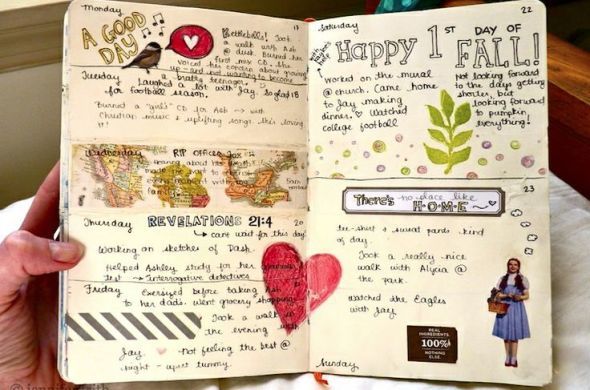 Monday
17
A GOOD DAY
Kettlebells! Took
a walk with Ash
@ dusk. Burned her
first mix CD. She
voiced her concern about growing
up - and not wanting to become
a bratty teenager.
Tuesday
Laughed a lot with Jay. So glad
for football season.
18
Burned a "girl's" CD for Ash with
Christian music & uplifting songs. She's loving
it!
Wednesday
RIP Officer
Hearing about
made me
Thursday
REVELATIONS 21:4
20
can't wait for this day!
Working on sketches of Dash.
Helped Ashley study for her
test → Interrogative detectives
Friday
Exersized before taking Ash
to her dads. Went grocery shopping.
Took a walk in
the evening with
Jay.
- Not feeling the best @
night - upset tummy.
Saturday
22
Happy 1st DAY OF
FALL!
Worked on the mural
@ church. Came home
to Jay making
dinner. ♡ Watched
college football
Not looking forward
to the days getting
shorter, but
looking forward
to pumpkin
everything!
23
There's no place like
H·O·M·E
tee-shirt & sweat pants kind
of day.
Took a really nice
walk with Alycia @
the park.
Watched the Eagles
with Jay
REAL
INGREDIENTS
100%
NOTHING
ELSE
Sunday